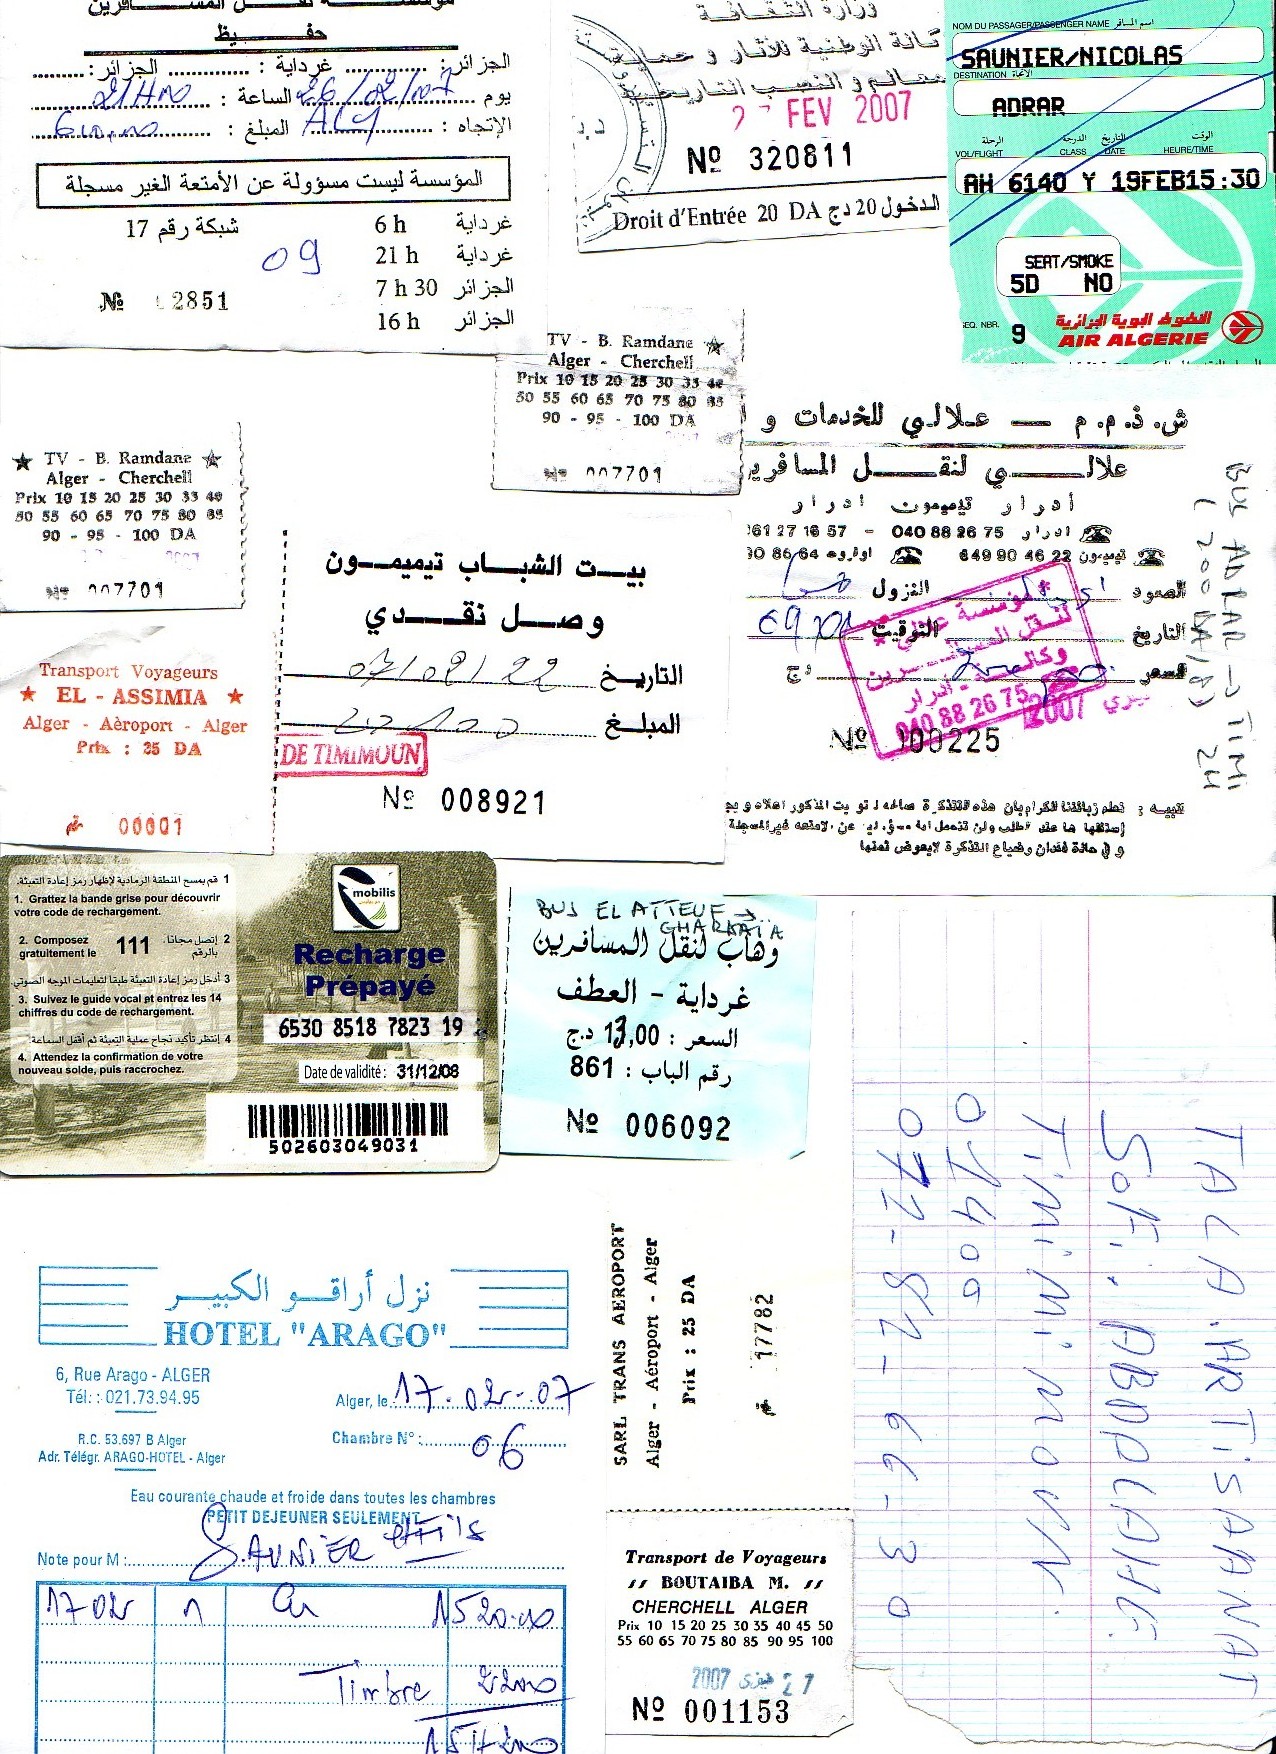 مؤسسة نقل المسافرين
حفيظ
الجزائر: غرداية : الجزائر:
يوم 26/02/07 الساعة : 21H00
الإتجاه : Alg المبلغ :
المؤسسة ليست مسؤولة عن الأمتعة الغير مسجلة
غرداية 6 h شبكة رقم 17
غرداية 21 h
09
الجزائر 7 h 30
الجزائر 16 h
№ 2851
وزارة الثقافة
كالة الوطنية للآثار و حماية
معالم و النصب التاريخية
2 FEV 2007
Nº 320811
Droit d'Entrée 20 DA الدخول 20 دج
NOM DU PASSAGER/PASSENGER NAME اسم المسافر
SAUNIER/NICOLAS
DESTINATION
ADRAR
الرحلة الدرجة التاريخ الوقت
VOL/FLIGHT CLASS DATE HEURE/TIME
AH 6140 Y 19FEB15:30
SEAT/SMOKE
5D NO
SEQ. NBR. 9
الخطوط الجوية الجزائرية
AIR ALGERIE
TV - B. Ramdane
Alger - Cherchell
Prix 10 15 20 25 30 35 40
50 55 60 65 70 75 80 85
90 - 95 - 100 DA
007701
TV - B. Ramdane
Alger - Cherchell
Prix 10 15 20 25 30 35 40
50 55 60 65 70 75 80 85
90 - 95 - 100 DA
2007
Nº 007701
ش.ذ.م.م — علالي للخدمات و ا
علالي لنقل المسافرين
أدرار تيميمون ادرار
061 27 16 57 - 040 88 26 75 ادرار
90 86 64 اوقروت 049 90 46 22 تيميمون
الصعود النزول
التاريخ التوقيت
السعر دج
مؤسسة علالي
لنقل المسافرين
وكالة - أدرار
040 88 26 75
2007
Nº 000225
BUS ADRAR → TIMI
(200 DA/BD) 24
تنبيه : نعلم زبائننا الكرام بان هذه التذكرة صالحة لتوقيت المذكور اعلاه و يجب
بيت الشباب تيميمون
وصل نقدي
التاريخ 07/02/22
المبلغ
DE TIMIMOUN
Nº 008921
Transport Voyageurs
EL - ASSIMIA
Alger - Aèroport - Alger
Prix : 25 DA
رقم 00001
1 قم بمسح المنطقة الرمادية لإظهار رمز إعادة التعبئة.
1. Grattez la bande grise pour découvrir
votre code de rechargement.
2 إتصل مجانا بالرقم
2. Composez gratuitement le 111
3 أدخل رمز إعادة التعبئة طبقا لتعليمات الموجه الصوتي
3. Suivez le guide vocal et entrez les 14
chiffres du code de rechargement.
4 إنتظر تأكيد نجاح عملية التعبئة ثم أقفل السماعة.
4. Attendez la confirmation de votre
nouveau solde, puis raccrochez.
mobilis
Recharge
Prépayé
6530 8518 7823 19
Date de validité : 31/12/08
502603049031
BUS EL ATTEUF →
GHARDAÏA
وهاب لنقل المسافرين
غرداية - العطف
السعر : 13,00 دج
رقم الباب : 861
Nº 006092
TALA .ARTiSANAT
SOFi. ABDELAHE
TiMiMOUN.
01400
072-82-66-30
نزل أراقو الكبير
HOTEL "ARAGO"
6, Rue Arago - ALGER
Tél: : 021.73.94.95
R.C. 53.697 B Alger
Adr. Télégr. ARAGO-HOTEL - Alger
Alger, le 17-02-07
Chambre N° : 06
Eau courante chaude et froide dans toutes les chambres
PETIT DEJEUNER SEULEMENT
Note pour M : SAUNIER et Fils
17 02 1 Ch 1520.00
Timbre 22.00
1542.00
SARL TRANS AEROPORT
Alger - Aéroport - Alger
Prix : 25 DA
رقم 17782
Transport de Voyageurs
// BOUTAIBA M. //
CHERCHELL ALGER
Prix 10 15 20 25 30 35 40 45 50
55 60 65 70 75 80 85 90 95 100
2007 فيفري 27
Nº 001153